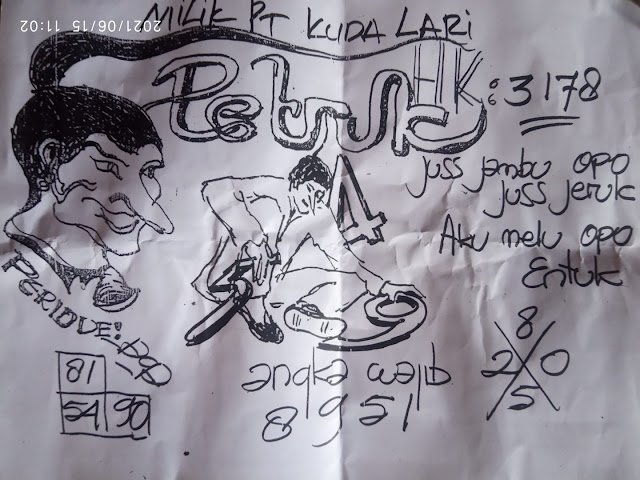 2021/06/15 11:02
MILIK PT KUDA LARI
HK: 3178
juss jambu opo
juss jeruk
Aku melu opo
Entuk
PERIODE:
81
54 90
angka wajib
8951
8
2 0
5